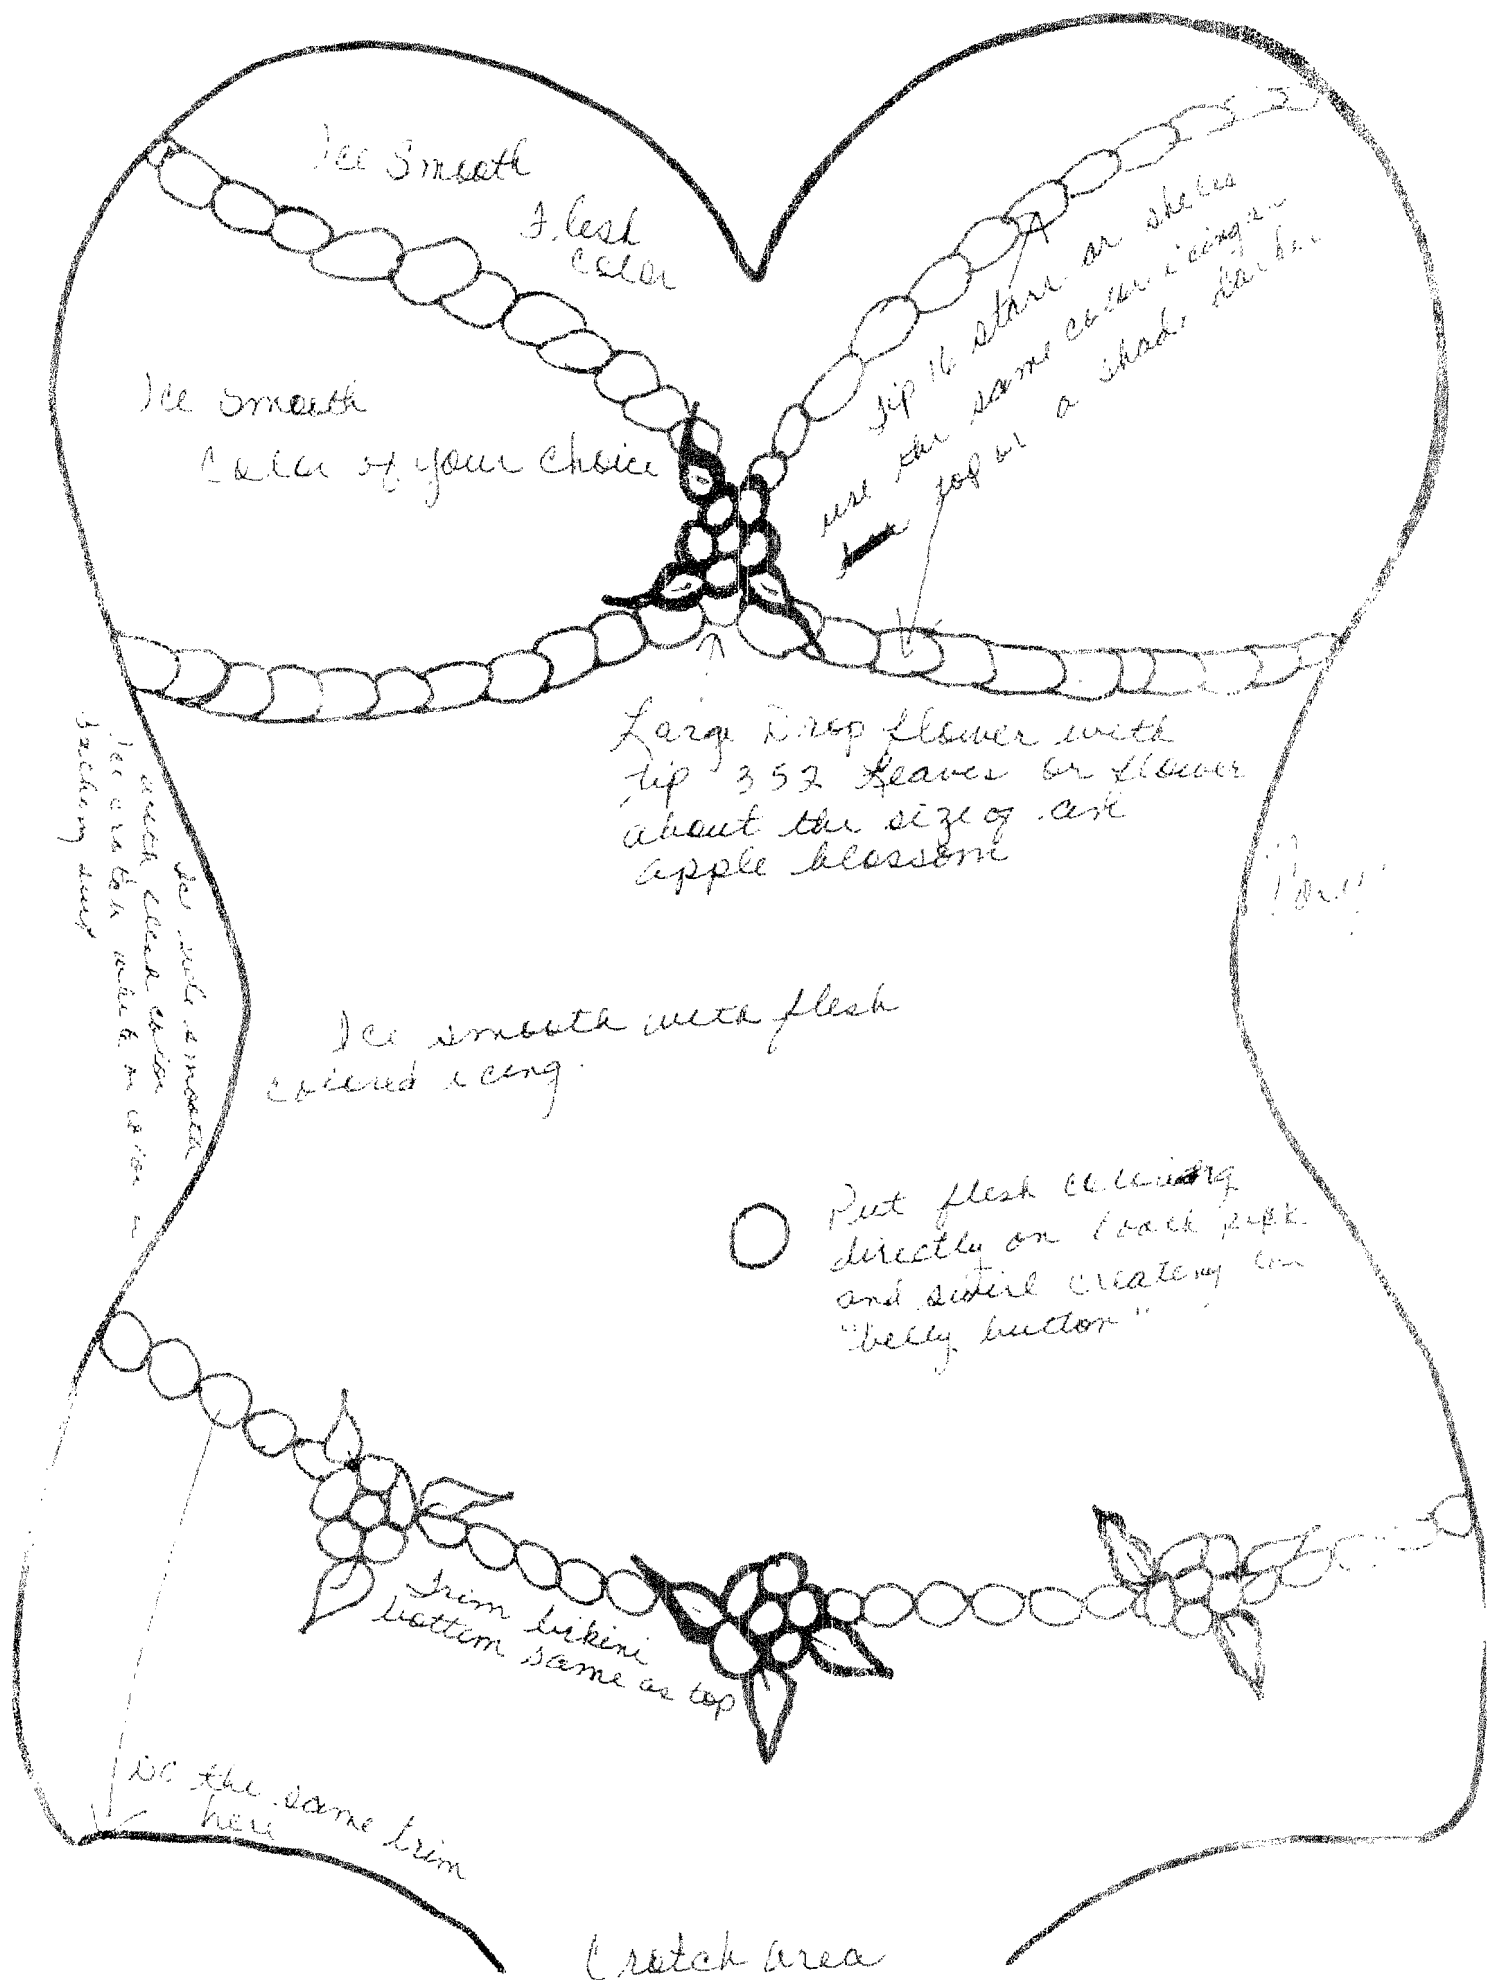 Ice Smooth
Flesh
Color
Ice Smooth
Color of your choice
Tip 16 stars or shells
use the same color icing as
top or a shade darker
Large Drop flower with
tip 352 leaves or flower
about the size of an
apple blossom
Ice side smooth
with flesh color
Ice crotch white or color
bathing suit
Ice smooth with flesh
colored icing.
Put flesh
directly on
and swirl creating
"belly button"
Trim bikini
bottom same as top
Do the same trim
here
Crotch area